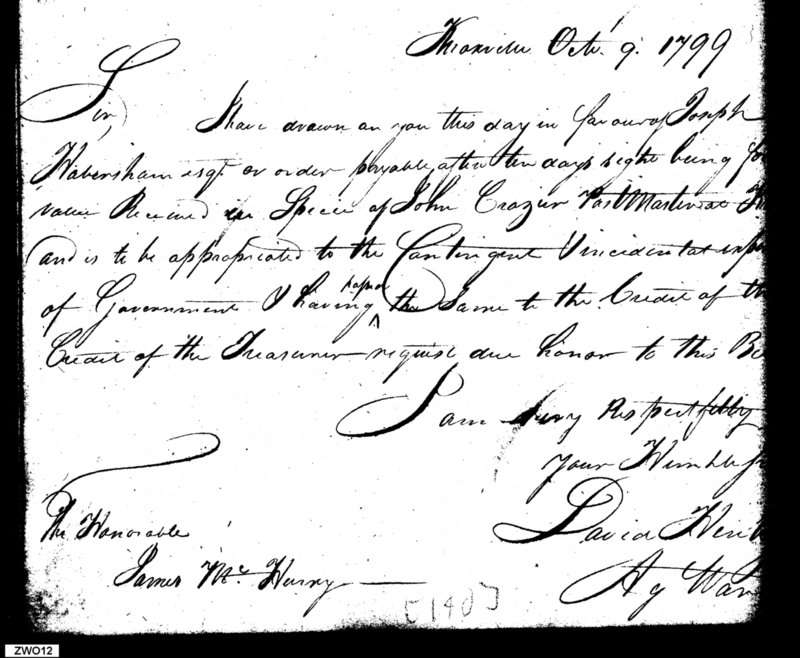 Knoxville Octr. 9. 1799
Sir, I have drawn on you this day in favour of Joseph
Habersham esqr. or order payable after ten days sight being for
value Received in Specie of John Crozier Post Master at
and is to be appropriated to the Contingent & incidental
of Government & having passed the Same to the Credit of the
Credit of the Treasurer request due honor to this
I am very Respectfully
your Humble
David Hen
Ag War
The Honorable
James Mc Henry
[140]
ZWO12